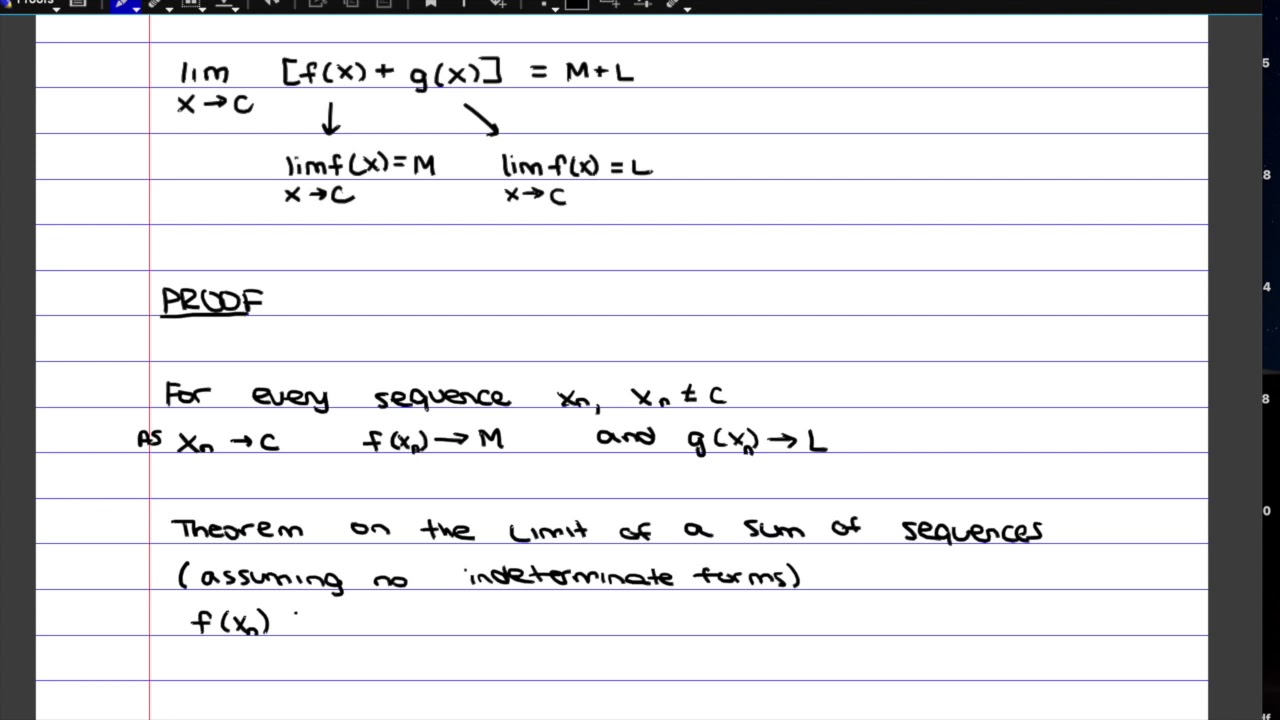 Proofs
lim [f(x) + g(x)] = M+L
x→C
↓ ↘
lim f(x) = M lim f(x) = L
x→C x→C
PROOF
For every sequence xₙ, xₙ ≠ C
As xₙ → C f(xₙ) → M and g(xₙ) → L
Theorem on the Limit of a sum of sequences
(assuming no indeterminate forms)
f(xₙ)
5
8
4
8
0